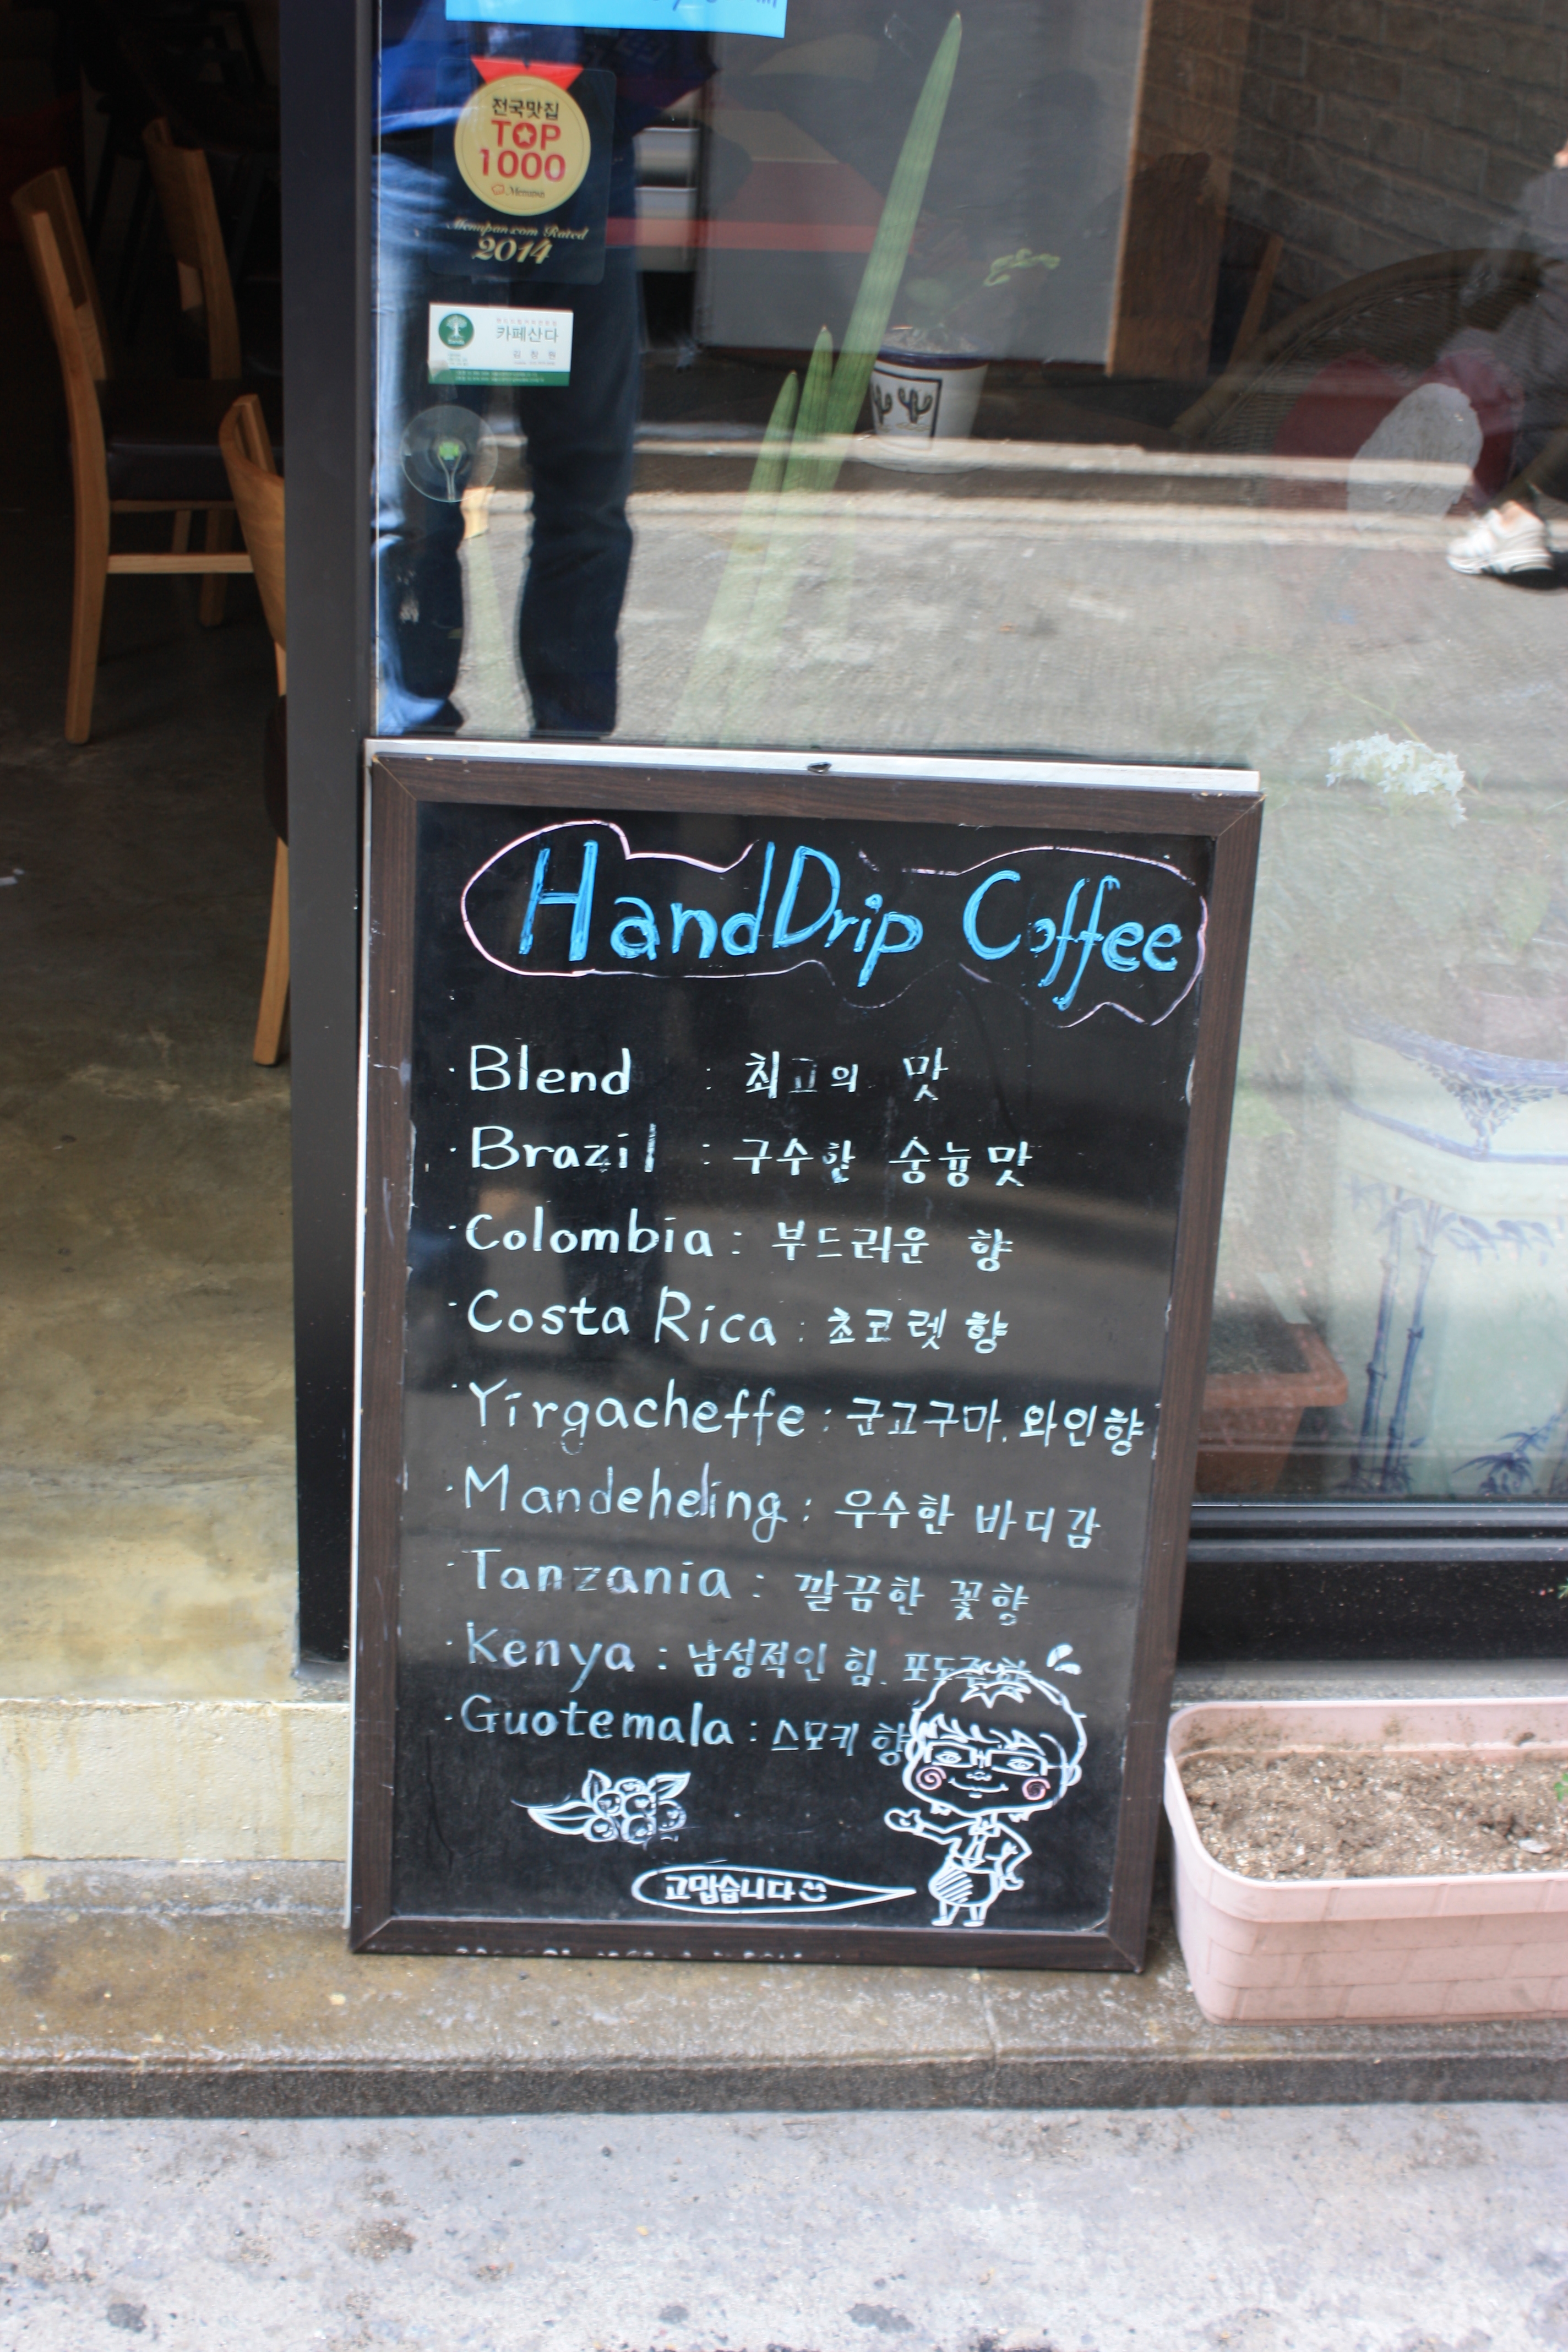 전국맛집
TOP
1000
Menupan.com Rated
2014
카페산다
김창원
HandDrip Coffee
· Blend : 최고의 맛
· Brazil : 구수한 숭늉맛
· Colombia : 부드러운 향
· Costa Rica : 초코렛 향
· Yirgacheffe : 군고구마, 와인향
· Mandeheling : 우수한 바디감
· Tanzania : 깔끔한 꽃향
· Kenya : 남성적인 힘, 포도주향
· Guotemala : 스모키 향
고맙습니다